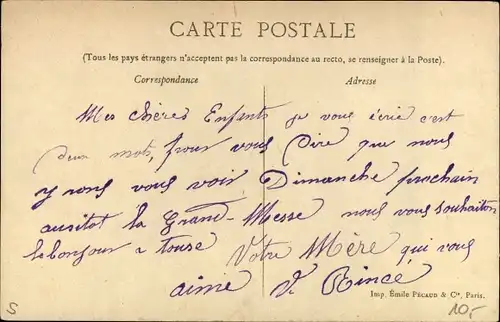 CARTE POSTALE
(Tous les pays étrangers n'acceptent pas la correspondance au recto, se renseigner à la Poste).
Correspondance
Adresse
Mes chères Enfents je vous écrie c'est
deux mots, pour vous Dire que nous
y rons vous voir Dimanche prochain
ausitot la Grand-Messe nous vous souhaiton
le bonjour a touse
Votre Mère qui vous
aime V. Rincé
Imp. Émile PÉCAUD & Cie, Paris.
S
10,-